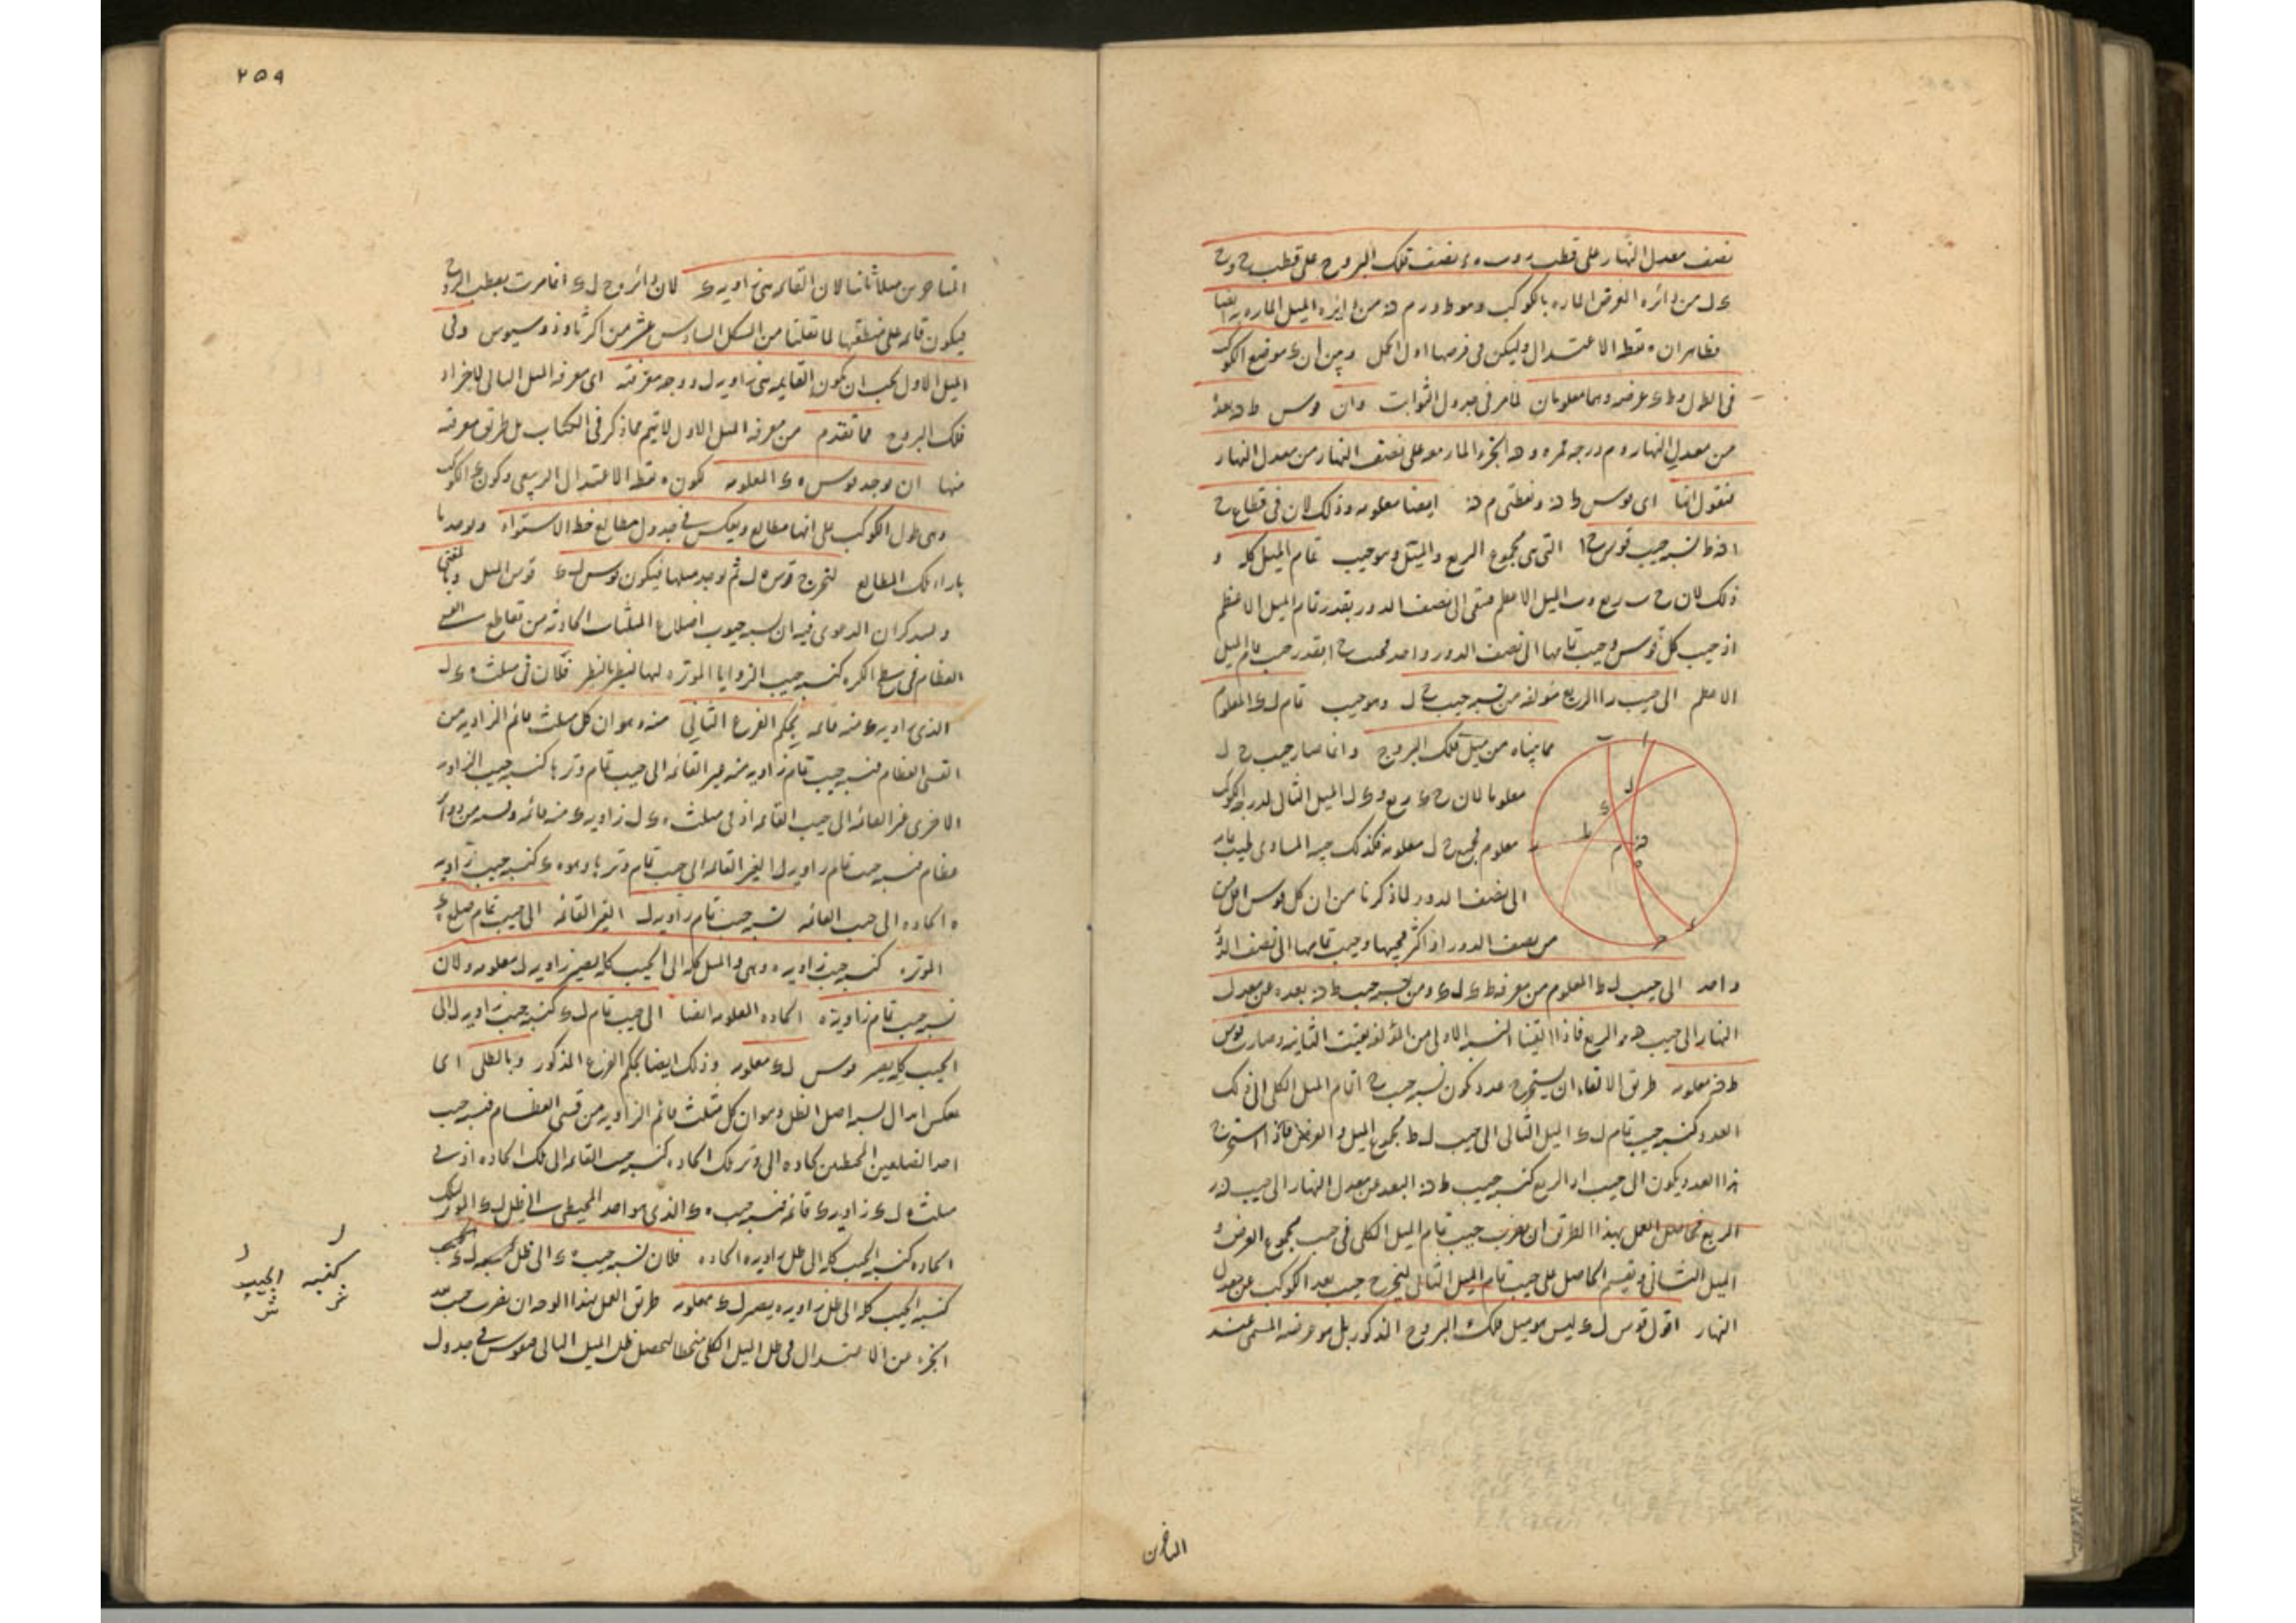 نصف معدل النهار على قطب ر و ب ه ء نصف فلك البروج على قطب ح و ح
ء ل من دائرة العرض المارة بالكوكب وهو ط و ر م ن من دائرة الميل المارة به ايضا
فظاهر ان ه نقطة الاعتدال وليكن فى فرضها اول الحمل وبين ان ء موضع الكوكب
فى الطول و ط ء عرضه وهما معلومان لما مر فى جدول الثوابت وان قوس ط ن بعده
من معدل النهار و م درجة ممره و ن الجزء المار معه على نصف النهار من معدل النهار
فنقول انها اى قوس ط ن ونقطتى م ن ايضا معلومة وذلك لان فى قطاع ح
ا ن ط نسبة جيب قوس ح ا التى هى مجموع الربع والميل وهو جيب تمام الميل كله و
ذلك لان ح ب ربع و ب ا الميل الاعظم فبقى الى نصف الدور بقدر تمام الميل الاعظم
اذ جيب كل قوس وجيب تمامها الى نصف الدور واحد فجيب ح ا بقدر جيب تمام الميل
الاعظم الى جيب ر ا الربع مؤلفة من نسبة جيب ح ل وهو جيب تمام ل ء المعلوم
مما بيناه من ميل فلك البروج وانما صار جيب ح ل
معلوما لان ح ء ربع و ء ل الميل الثانى لدرجة الكوكب
معلوم فجميع ح ل معلومة فكذلك جيبه المساوى لجيب تمامه
الى نصف الدور لما ذكرنا من ان كل قوس اقل من
من نصف الدور او اكثر فجيبها وجيب تمامها الى نصف الدور
واحد الى جيب ل ط المعلوم من معرفة ط ء ل ء ومن نسبة جيب ط ن بعده عن معدل
النهار الى جيب ن ر الربع فاذا القينا النسبة الاولى من المؤلفة بقيت الثانية وصارت قوس
ط ن معلومة طريق الالقاء ان يستخرج عدد يكون نسبة جيب ح ا تمام الميل الكلى الى ذلك
العدد كنسبة جيب تمام ل ء الميل الثانى الى جيب ل ط مجموع الميل والعرض فاذا استخرج
هذا العدد يكون الى جيب ا ر الربع كنسبة جيب ط ن البعد عن معدل النهار الى جيب ن ر
الربع فحاصل العمل بهذا الطريق ان يضرب جيب تمام الميل الكلى فى جيب مجموع العرض و
الميل الثانى ويقسم الحاصل على جيب تمام الميل الثانى ليخرج جيب بعد الكوكب عن معدل
النهار اقول قوس ل ء ليس هو ميل فلك البروج المذكور بل هو عرضه المسمى عند
المتاخرين
٢٥٩
المتاخرين ميلا ثانيا لان القائمة هى زاوية ء لان دائرة ح ل ء انما مرت بقطب البروج
فيكون قائمة على منطقتها لما نقلنا من الشكل السادس عشر من اكر ثاوذوسيوس وفى
الميل الاول يجب ان يكون القائمة هى زاوية ل ووجه معرفته اى معرفة الميل الثانى لاجزاء
فلك البروج مما تقدم من معرفة الميل الاول لا يتم بما ذكر فى الكتاب بل طريق معرفته
منها ان يوجد قوس ه ء المعلومة لكون ه نقطة الاعتدال الربيعى وكون ء الكوكب
وهى طول الكوكب على انها مطالع ويعكس فى جدول مطالع خط الاستواء ويوجد ما
بازاء تلك المطالع لتخرج قوس ه ل ثم يوجد ميلها فيكون قوس ل ء قوس الميل وبالمغنى
وليذكر ان الدعوى فيه ان نسبة جيوب اضلاع المثلثات الحادثة من تقاطع القسى
العظام فى سطح الكرة كنسبة جيب الزوايا الموترة لها النظير بالنظير فلان فى مثلث ه ء ل
الذى زاوية ء منه قائمة بحكم الفرع الثانى منه وهو ان كل مثلث قائم الزاوية من
القسى العظام فنسبة جيب تمام زاوية منه غير القائمة الى جيب تمام وترها كنسبة جيب الزاوية
الاخرى غير القائمة الى جيب القائمة اذ فى مثلث ه ء ل زاوية ء منه قائمة وقسيه من دوائر
عظام فنسبة جيب تمام زاوية ل الغير القائمة الى جيب تمام وترها وهو ه ء كنسبة جيب زاوية
ه الحادة الى جيب القائمة نسبة جيب تمام زاوية ل الغير القائمة الى جيب تمام ضلع ه ء
الموترة كنسبة جيب زاوية ه وهى الميل كله الى الجيب كله يصير زاوية ل معلومة ولان
نسبة جيب تمام زاوية ه الحادة المعلومة ايضا الى جيب تمام ل ء كنسبة جيب زاوية ل الى
الجيب كله يصير قوس ل ء معلومة وذلك ايضا بحكم الفرع المذكور وبالظلى اى
بعكس ابدال نسبة اصل الظل وهو ان كل مثلث قائم الزاوية من قسى العظام فنسبة جيب
احد الضلعين المحيطين بحادة الى وتر تلك الحادة كنسبة جيب القائمة الى تلك الحادة اذ فى
مثلث ه ل ء زاوية ء قائمة فنسبة جيب ه ء الذى هو احد المحيطين الى ظل ل ء الموتر لتلك
الحادة كنسبة الجيب كله الى ظل زاوية ه الحادة فلان نسبة جيب ه ء الى ظل ل ء
كنسبة الجيب كله الى ظل زاوية ه يصير ل ء معلومة طريق العمل بهذا الوجه ان يضرب جيب بعد
الجزء من الاعتدال فى ظل الميل الكلى منحطا ليحصل ظل الميل الثانى فيقوس فى جدول
كنسبة الجيب